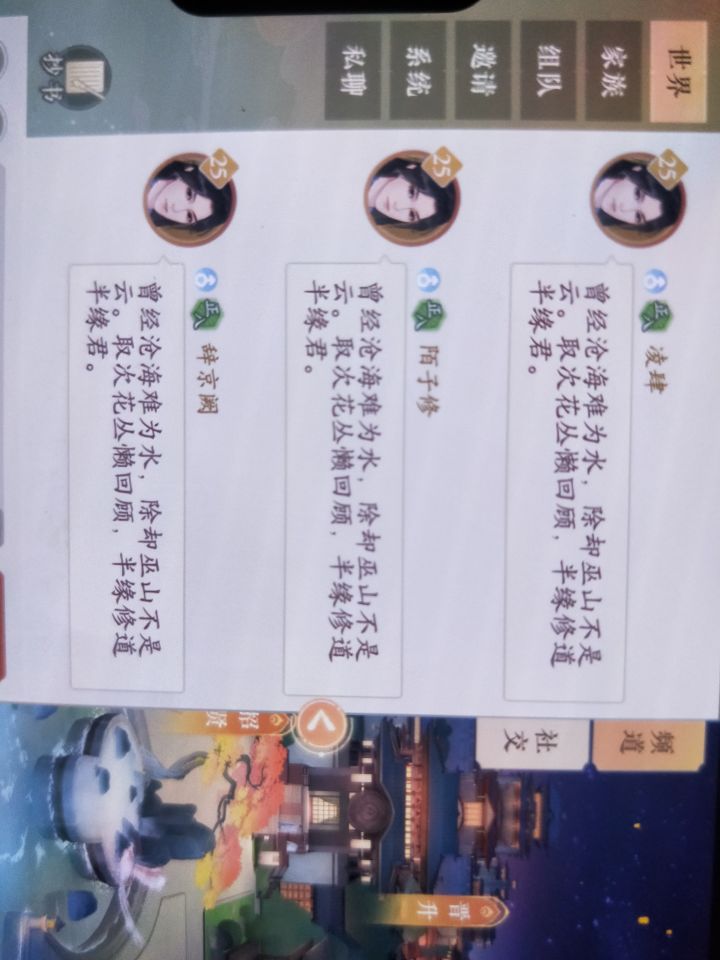 世界
家族
组队
邀请
系统
私聊
抄书
25
正八
凌肆
曾经沧海难为水，除却巫山不是
云。取次花丛懒回顾，半缘修道
半缘君。
25
正八
陌子修
曾经沧海难为水，除却巫山不是
云。取次花丛懒回顾，半缘修道
半缘君。
25
正八
辞京阙
曾经沧海难为水，除却巫山不是
云。取次花丛懒回顾，半缘修道
半缘君。
频道
社交
晋升
招贤